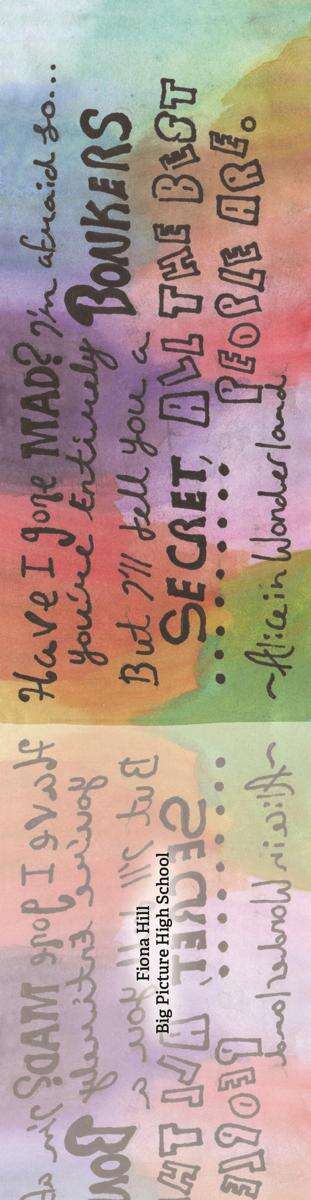 Have I gone MAD? I'm afraid so...
you're Entirely BONKERS
But I'll tell you a
SECRET, ALL THE BEST
.......... PEOPLE ARE.
~Alice in Wonderland
Fiona Hill
Big Picture High School